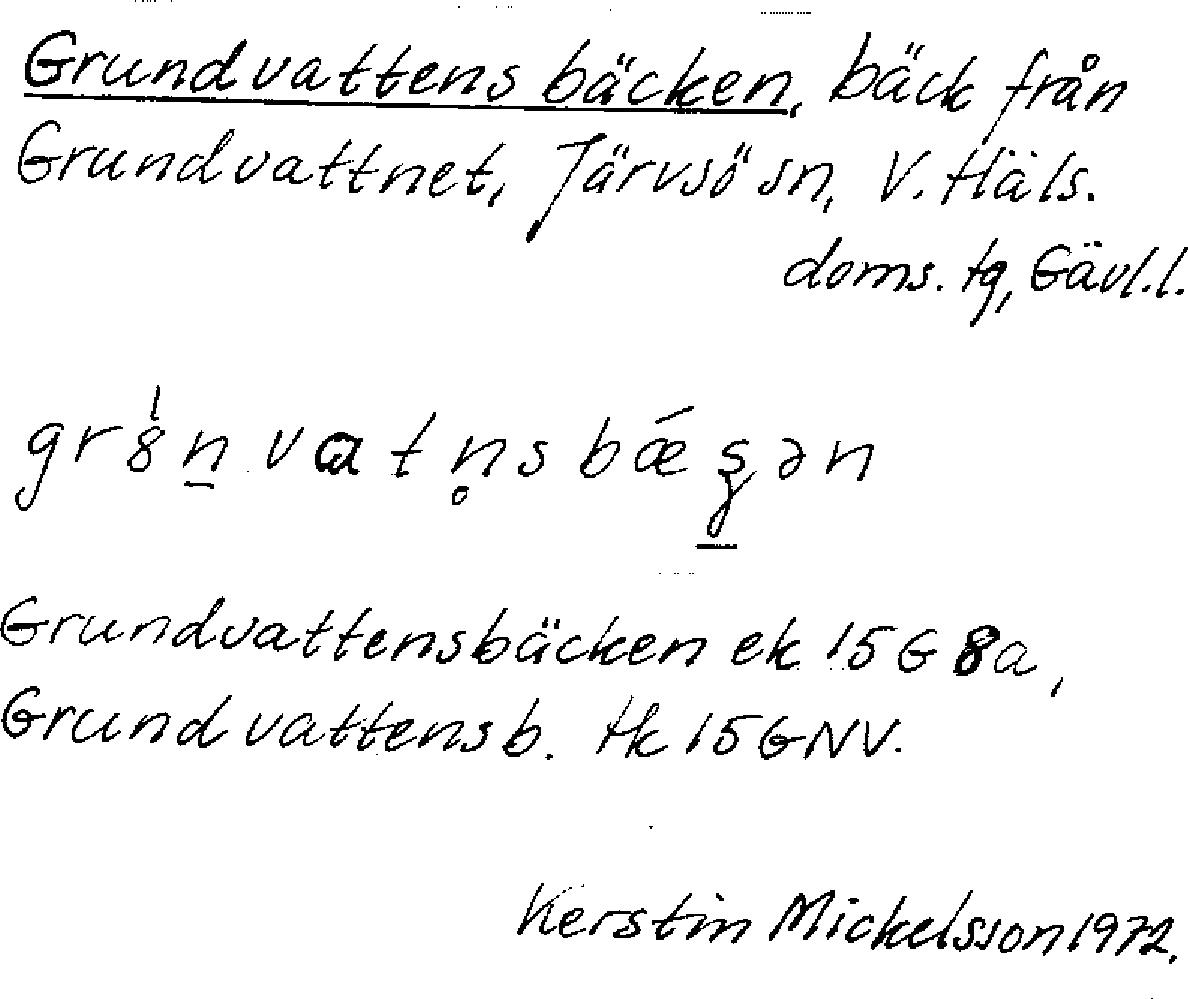 Grundvattensbäcken, bäck från
Grundvattnet, Järvsö sn, V. Häls.
doms. tg, Gävl.l.
Grundvattensbäcken ek 15G 8a,
Grundvattensb. tk 15GNV.
Kerstin Mickelsson 1972.